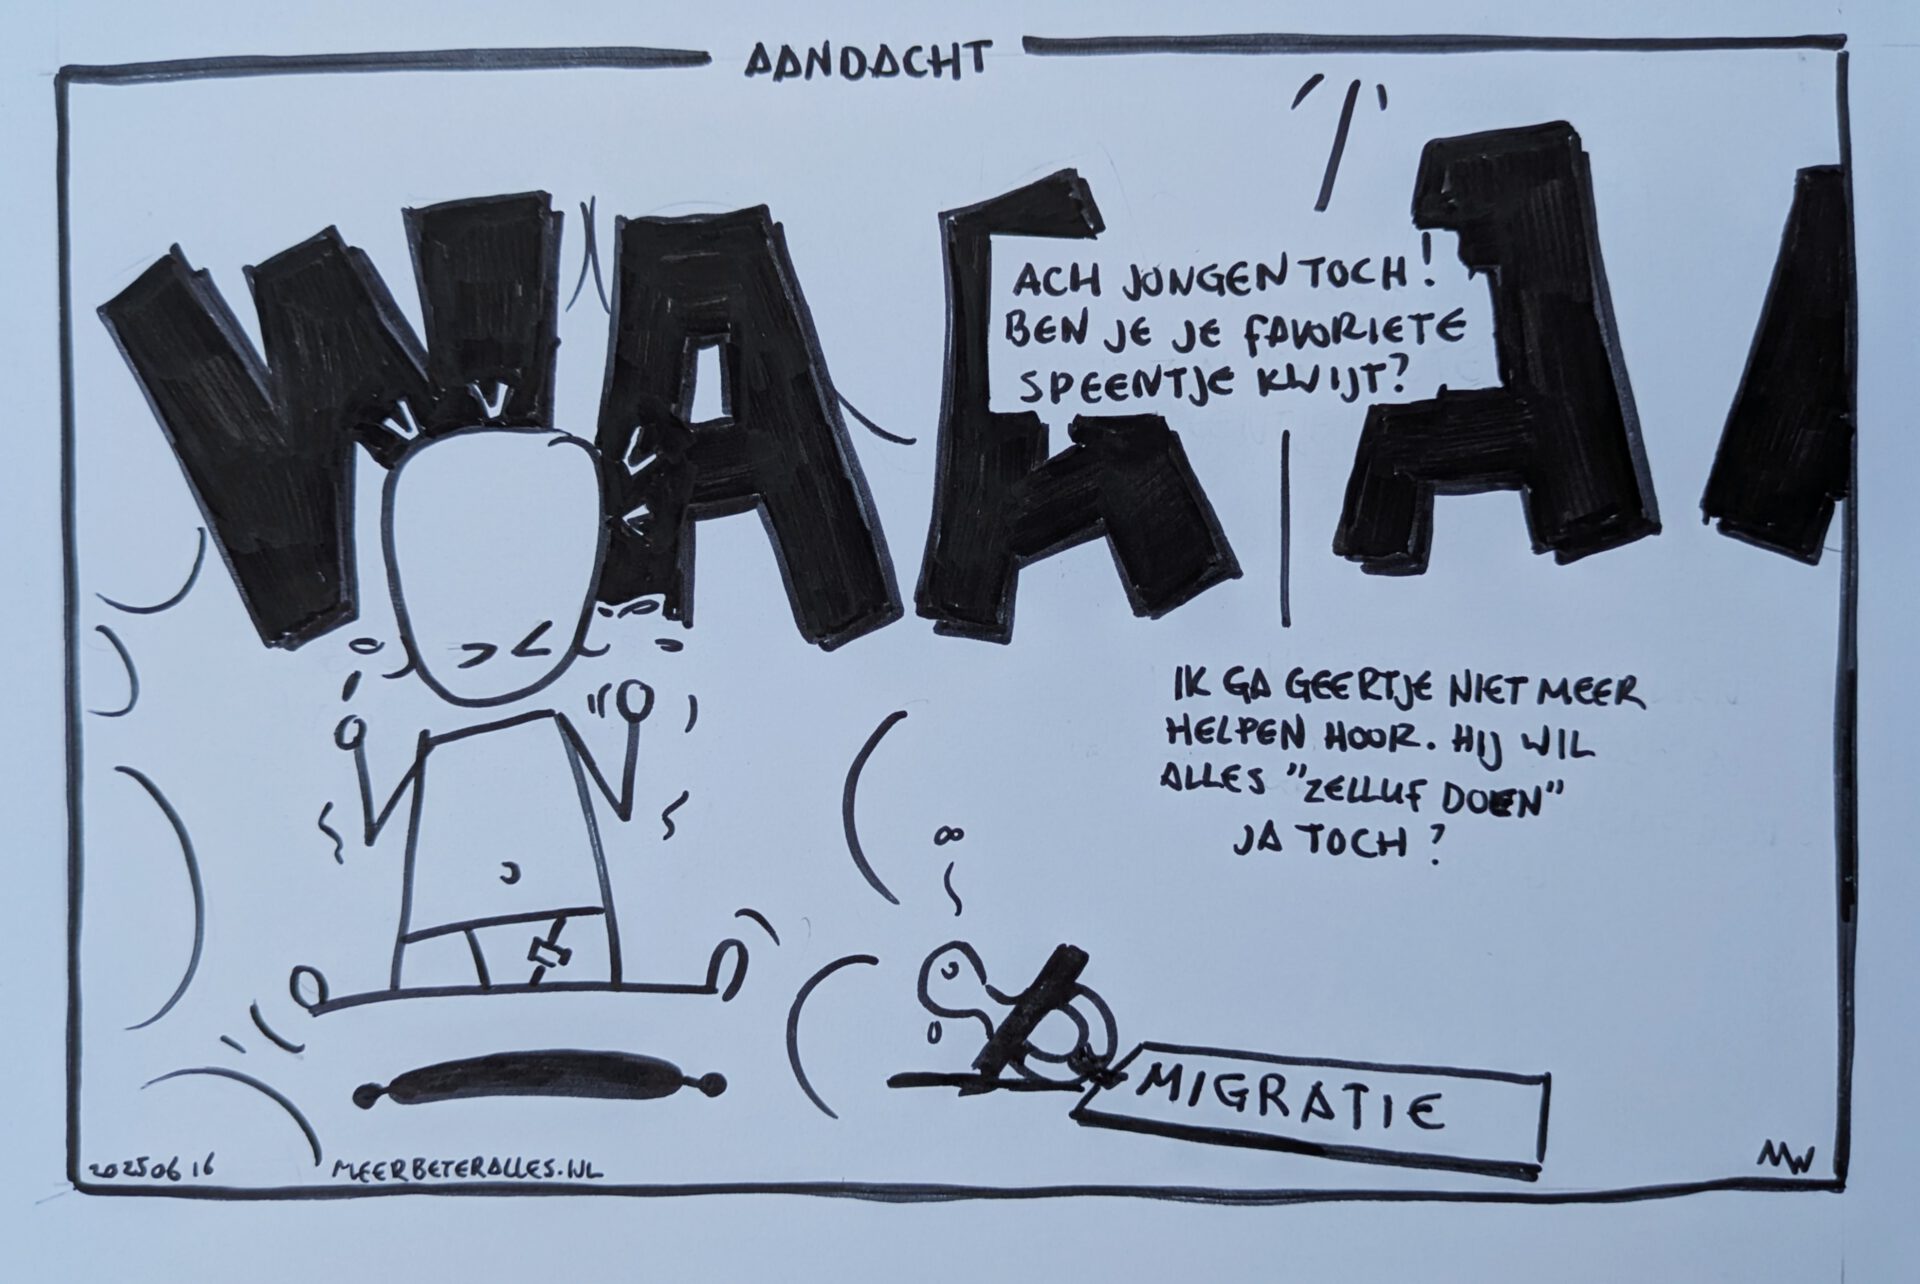 AANDACHT
WAAAA
ACH JONGEN TOCH!
BEN JE JE FAVORIETE
SPEENTJE KWIJT?
IK GA GEERTJE NIET MEER
HELPEN HOOR. HIJ WIL
ALLES "ZELLUF DOEN"
JA TOCH?
MIGRATIE
20250616
MEERBETERALLES.NL
MW